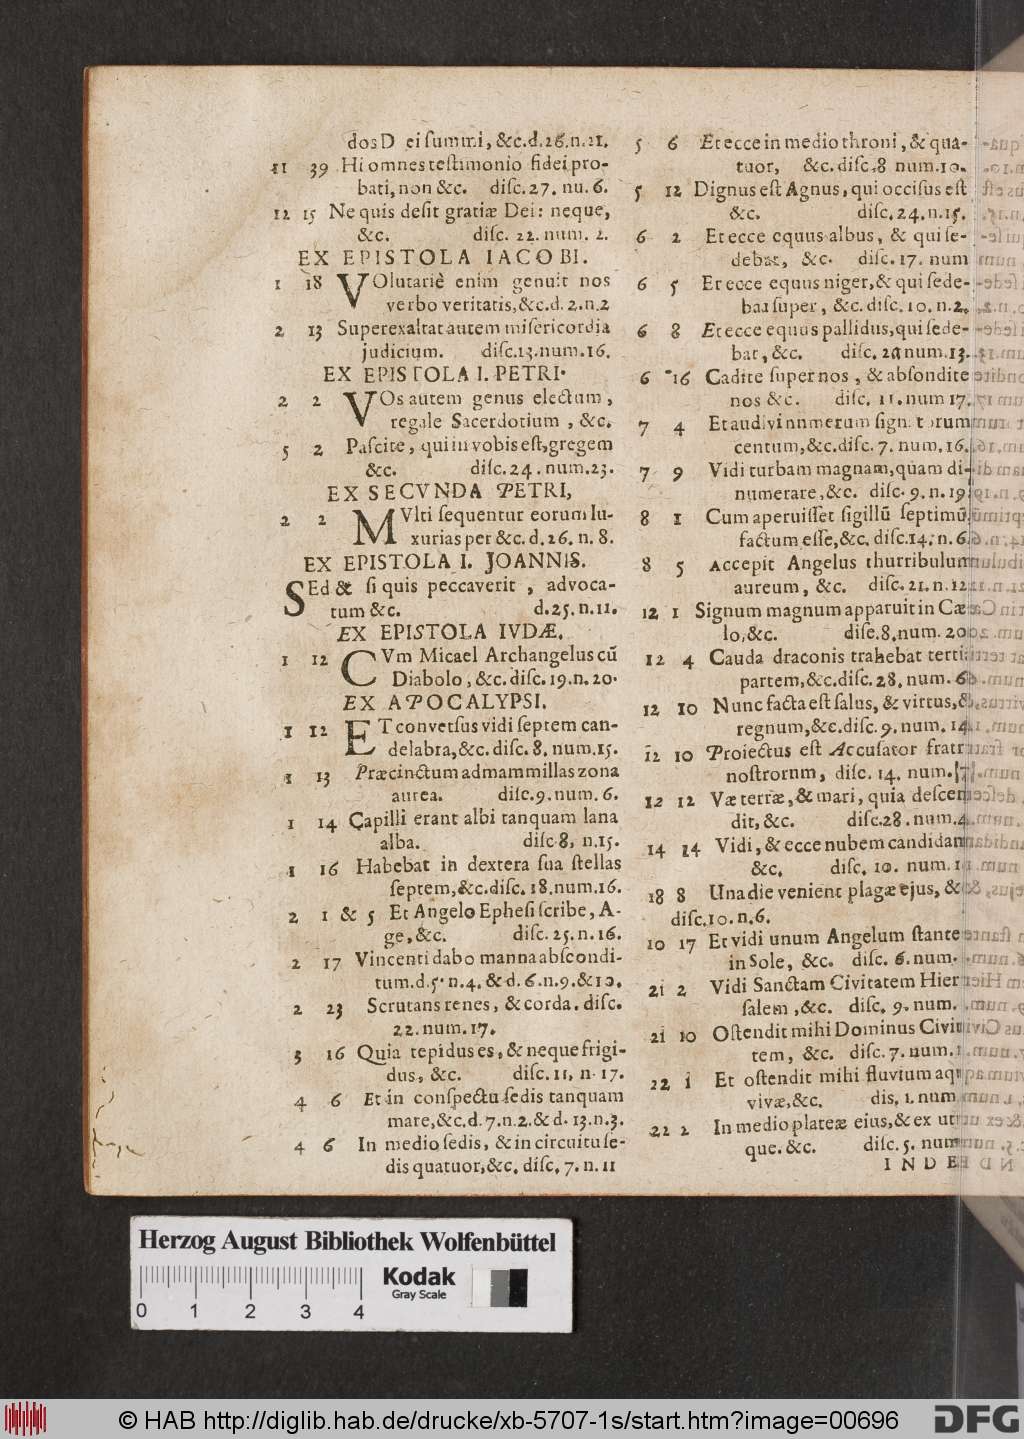 dos Dei summi, &c. d. 26. n. 21.
11 39 Hi omnes testimonio fidei pro-
bati, non &c. disc. 27. nu. 6.
12 15 Ne quis desit gratiæ Dei: neque,
&c. disc. 22. num. 2.
EX EPISTOLA IACOBI.
1 18 VOlutariè enim genuit nos
verbo veritatis, &c. d. 2. n. 2
2 13 Superexaltat autem misericordia
judicium. disc. 13. num. 16.
EX EPISTOLA I. PETRI.
2 2 VOs autem genus electum,
regale Sacerdotium, &c.
5 2 Pascite, qui in vobis est, gregem
&c. disc. 24. num. 23.
EX SECVNDA PETRI,
2 2 MVlti sequentur eorum lu-
xurias per &c. d. 26. n. 8.
EX EPISTOLA I. JOANNIS.
SEd & si quis peccaverit, advoca-
tum &c. d. 25. n. 11.
EX EPISTOLA IVDÆ.
1 12 CVm Micael Archangelus cū
Diabolo, &c. disc. 19. n. 20.
EX APOCALYPSI.
1 12 ET conversus vidi septem can-
delabra, &c. disc. 8. num. 15.
1 13 Præcinctum ad mammillas zona
aurea. disc. 9. num. 6.
1 14 Capilli erant albi tanquam lana
alba. disc 8, n. 15.
1 16 Habebat in dextera sua stellas
septem, &c. disc. 18. num. 16.
2 1 & 5 Et Angelo Ephesi scribe, A-
ge, &c. disc. 25. n. 16.
2 17 Vincenti dabo manna abscondi-
tum. d. 5. n. 4. & d. 6. n. 9. & 10.
2 23 Scrutans renes, & corda. disc.
22. num. 17.
3 16 Quia tepidus es, & neque frigi-
dus, &c. disc. 11, n. 17.
4 6 Et in conspectu sedis tanquam
mare, &c. d. 7. n. 2. & d. 13. n. 3.
4 6 In medio sedis, & in circuitu se-
dis quatuor, &c. disc. 7. n. 11
5 6 Et ecce in medio throni, & qua-
tuor, &c. disc. 8 num. 10.
5 12 Dignus est Agnus, qui occisus est
&c. disc. 24. n. 15.
6 2 Et ecce equus albus, & qui se-
debat, &c. disc. 17. num
6 5 Et ecce equus niger, & qui sede-
bat super, &c. disc. 10. n. 2.
6 8 Et ecce equus pallidus, qui sede-
bat, &c. disc. num. 13.
6 16 Cadite super nos, & abscondite
nos &c. disc. 11. num 17.
7 4 Et audivi numerum signatorum
centum, &c. disc. 7. num. 16.
7 9 Vidi turbam magnam, quam di-
numerare, &c. disc. 9. n. 19
8 1 Cum aperuisset sigillū septimū,
factum esse, &c. disc. 14. n. 6.
8 5 Accepit Angelus thurribulum
aureum, &c. disc. 21. n. 12
12 1 Signum magnum apparuit in Cæ-
lo, &c. dise. 8. num. 20
12 4 Cauda draconis trahebat terti
partem, &c. disc. 28. num. 6
12 10 Nunc facta est salus, & virtus, &
regnum, &c. disc. 9. num. 14
12 10 Proiectus est Accusator fratr
nostrorum, disc. 14. num.
12 12 Væ terræ, & mari, quia descen
dit, &c. disc. 28. num. 4
14 14 Vidi, & ecce nubem candidam
&c. disc. 10. num. 1
18 8 Una die venient plagæ ejus, &
disc. 10. n. 6.
10 17 Et vidi unum Angelum stante
in Sole, &c. disc. 6. num.
21 2 Vidi Sanctam Civitatem Hier
salem, &c. disc. 9. num.
21 10 Ostendit mihi Dominus Civi
tem, &c. disc. 7. num.
22 1 Et ostendit mihi fluvium aq
vivæ, &c. dis, 1. num
22 2 In medio plateæ eius, & ex ut
que. &c. disc. 5. num
INDE
Herzog August Bibliothek Wolfenbüttel
Kodak
Gray Scale
0 1 2 3 4
© HAB http://diglib.hab.de/drucke/xb-5707-1s/start.htm?image=00696
DFG